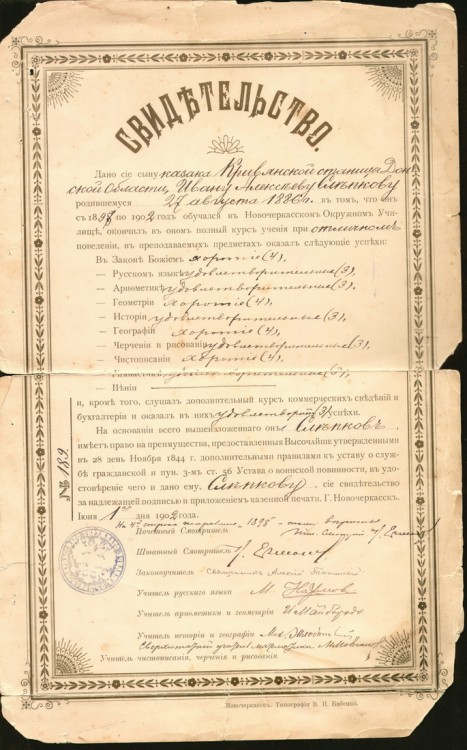 СВИДѢТЕЛЬСТВО.
Дано сіе сыну казака Кривянской станицы Дон
ской Области, Ивану Алексѣеву Слѣпкову
родившемуся 27 августа 1886 г. въ томъ, что онъ
съ 1897 по 1902 годъ обучался въ Новочеркасскомъ Окружномъ Учи-
лищѣ, окончилъ въ ономъ полный курсъ ученія при отличномъ
поведеніи, въ преподаваемыхъ предметахъ оказалъ слѣдующіе успѣхи:
Въ Законѣ Божіемъ хорошіе (4),
— Русскомъ языкѣ удовлетворительные (3),
— Арифметикѣ удовлетворительные (3),
— Геометріи хорошіе (4),
— Исторіи удовлетворительные (3),
— Географіи хорошіе (4),
— Черченіи и рисованіи удовлетворительные (3),
— Чистописаніи хорошіе (4),
— (3),
— Пѣніи
и, кромѣ того, слушалъ дополнительный курсъ коммерческихъ свѣдѣній и
бухгалтеріи и оказалъ въ нихъ удовлетворит. (3) успѣхи.
На основаніи всего вышеизложеннаго онъ Слѣпковъ
имѣетъ право на преимущества, предоставленныя Высочайше утвержденными
въ 28 день Ноября 1844 г. дополнительными правилами къ уставу о служ
бѣ гражданской и пун. 3-мъ ст. 56 Устава о воинской повинности, въ удо-
стовѣреніе чего и дано ему Слѣпкову сіе свидѣтельство
за надлежащей подписью и приложеніемъ казенной печати. Г. Новочеркасскъ.
Іюня 1 дня 1902 года.
№ 189.
На 4й строкѣ 1895
Почетный Смотритель
Штатный Смотритель
Законоучитель Священникъ
Учитель русскаго языка М. Наумовъ
Учитель арифметики и геометріи
Учитель исторіи и географіи
Учитель чистописанія, черченія и рисованія
Новочеркасскъ. Типографія